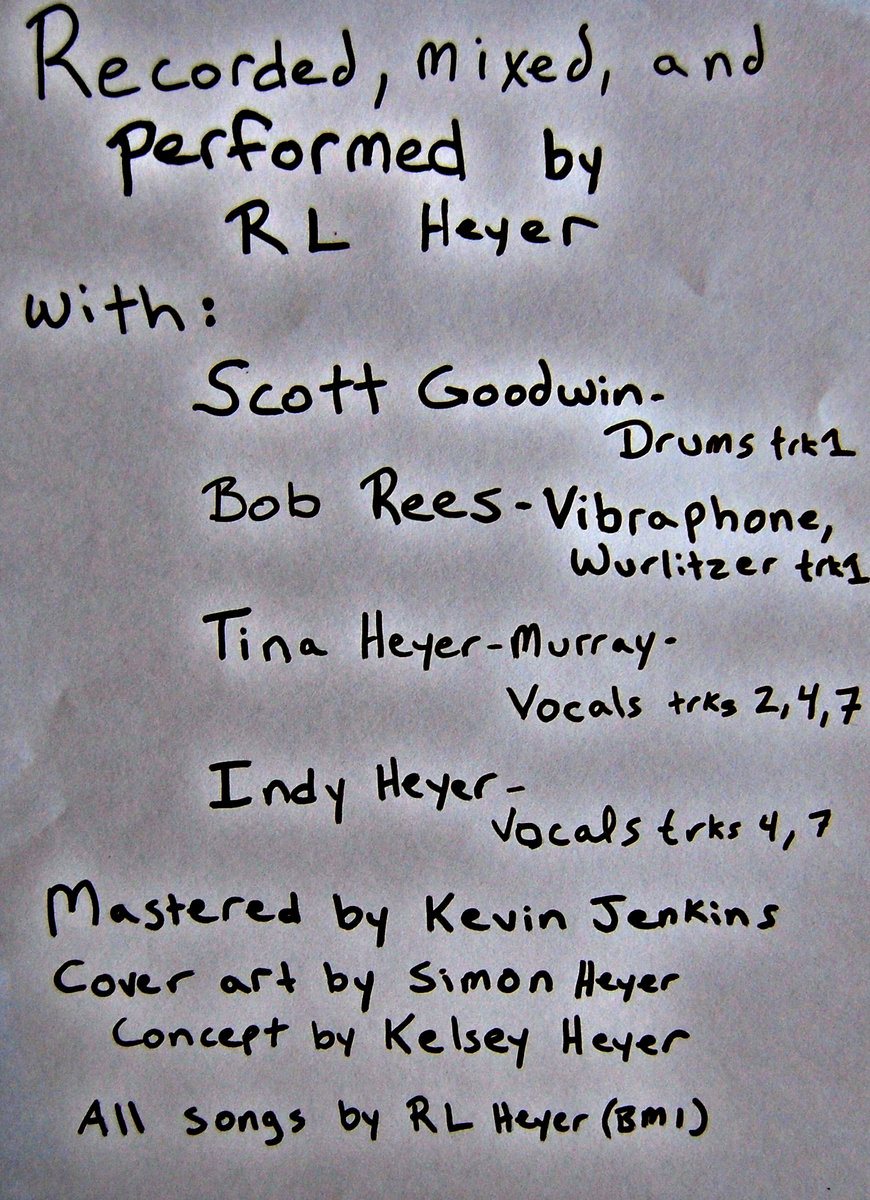 Recorded, mixed, and
performed by
RL Heyer
with:
Scott Goodwin-
Drums trk1
Bob Rees - Vibraphone,
Wurlitzer trk1
Tina Heyer-Murray-
Vocals trks 2,4,7
Indy Heyer-
Vocals trks 4, 7
Mastered by Kevin Jenkins
Cover art by Simon Heyer
Concept by Kelsey Heyer
All songs by RL Heyer (BMI)